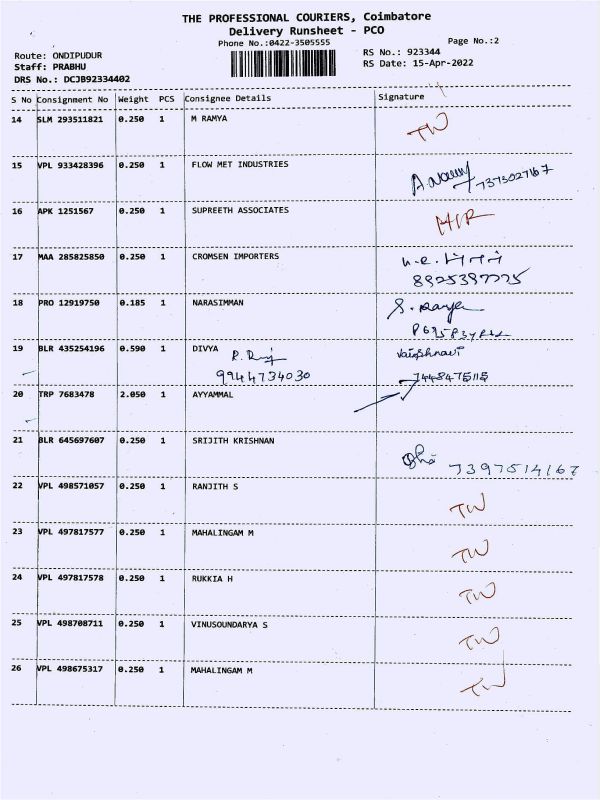 THE PROFESSIONAL COURIERS, Coimbatore
Delivery Runsheet - PCO
Phone No.:0422-3505555
Page No.:2
Route: ONDIPUDUR
Staff: PRABHU
DRS No.: DCJB92334402
RS No.: 923344
RS Date: 15-Apr-2022
S No Consignment No Weight PCS Consignee Details Signature
14 SLM 293511821 0.250 1 M RAMYA TW
15 VPL 933428396 0.250 1 FLOW MET INDUSTRIES
7373027167
16 APK 1251567 0.250 1 SUPREETH ASSOCIATES
17 MAA 285825850 0.250 1 CROMSEN IMPORTERS
18 PRO 12919750 0.185 1 NARASIMMAN
19 BLR 435254196 0.590 1 DIVYA Vaishnavi
9944734030 7448475115
20 TRP 7683478 2.050 1 AYYAMMAL
21 BLR 645697607 0.250 1 SRIJITH KRISHNAN
7397514167
22 VPL 498571057 0.250 1 RANJITH S TW
23 VPL 497817577 0.250 1 MAHALINGAM M TW
24 VPL 497817578 0.250 1 RUKKIA H TW
25 VPL 498708711 0.250 1 VINUSOUNDARYA S TW
26 VPL 498675317 0.250 1 MAHALINGAM M TW